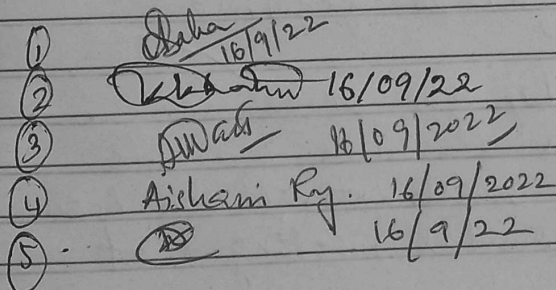 ① Saha 16/9/22
② 16/09/22
③ 16/09/2022
④ Aishani Ry. 16/09/2022
⑤ 16/9/22